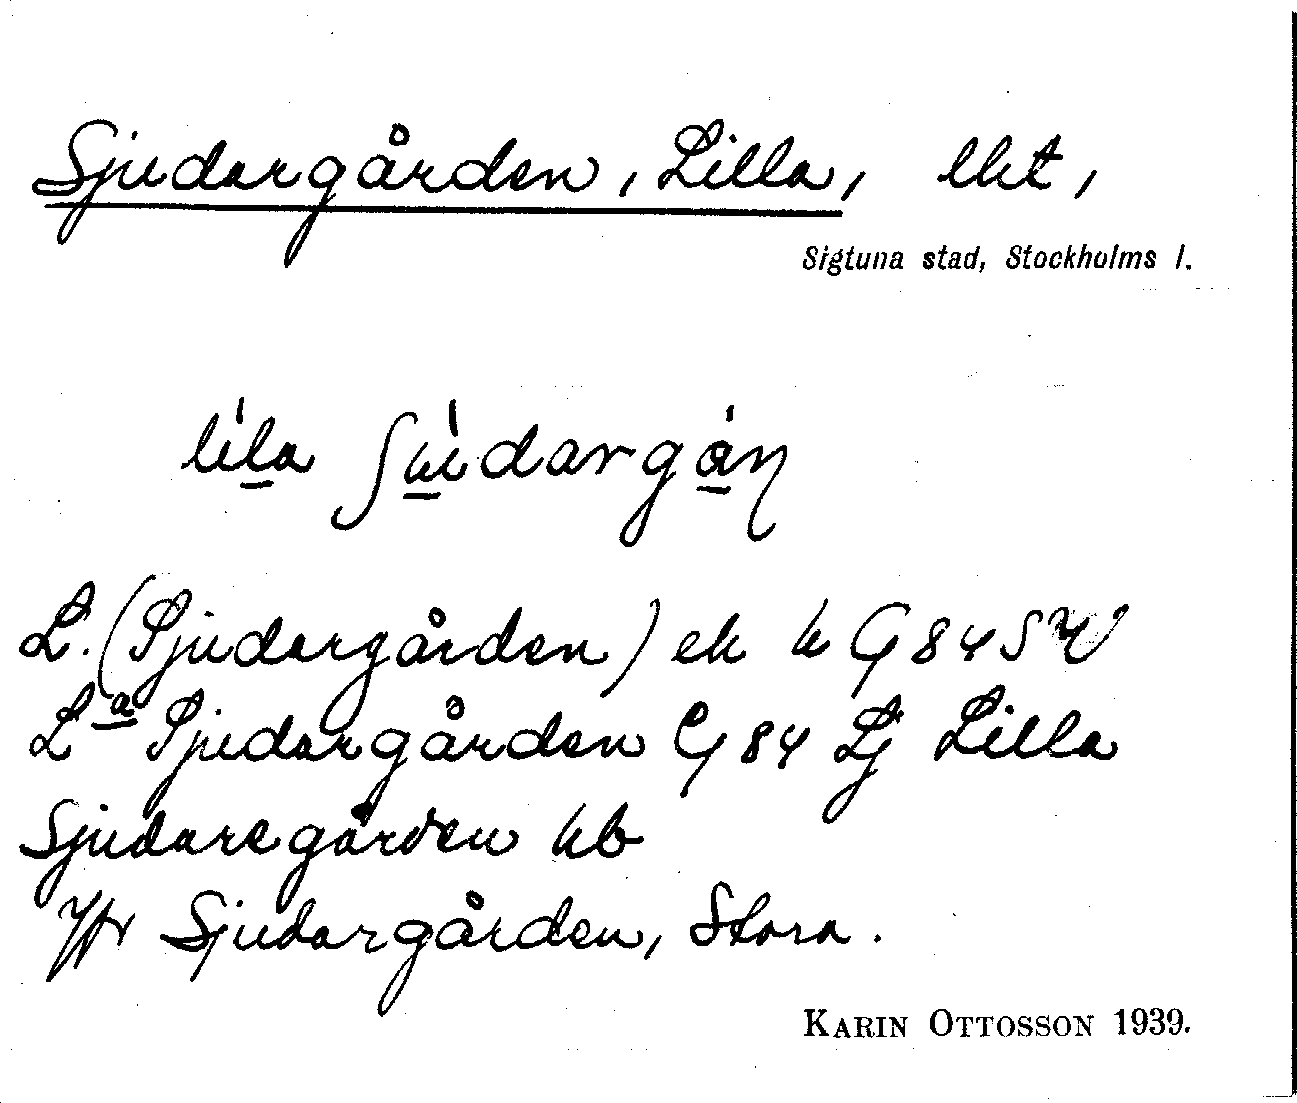 Sjudargården, Lilla, lht,
Sigtuna stad, Stockholms l.
lila ʃudargån
L. (Sjudargården) ek k G84SV
Lᵃ Sjudargården G84 Lj Lilla
Sjudaregården kb
Jfr Sjudargården, Stora.
KARIN OTTOSSON 1939.